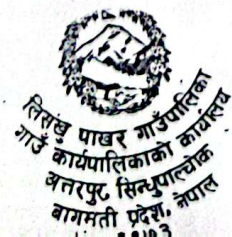 त्रिशंखु पाखर गाउँपालिका
गाउँ कार्यपालिकाको कार्यालय
अत्तरपुर, सिन्धुपाल्चोक
बागमती प्रदेश, नेपाल